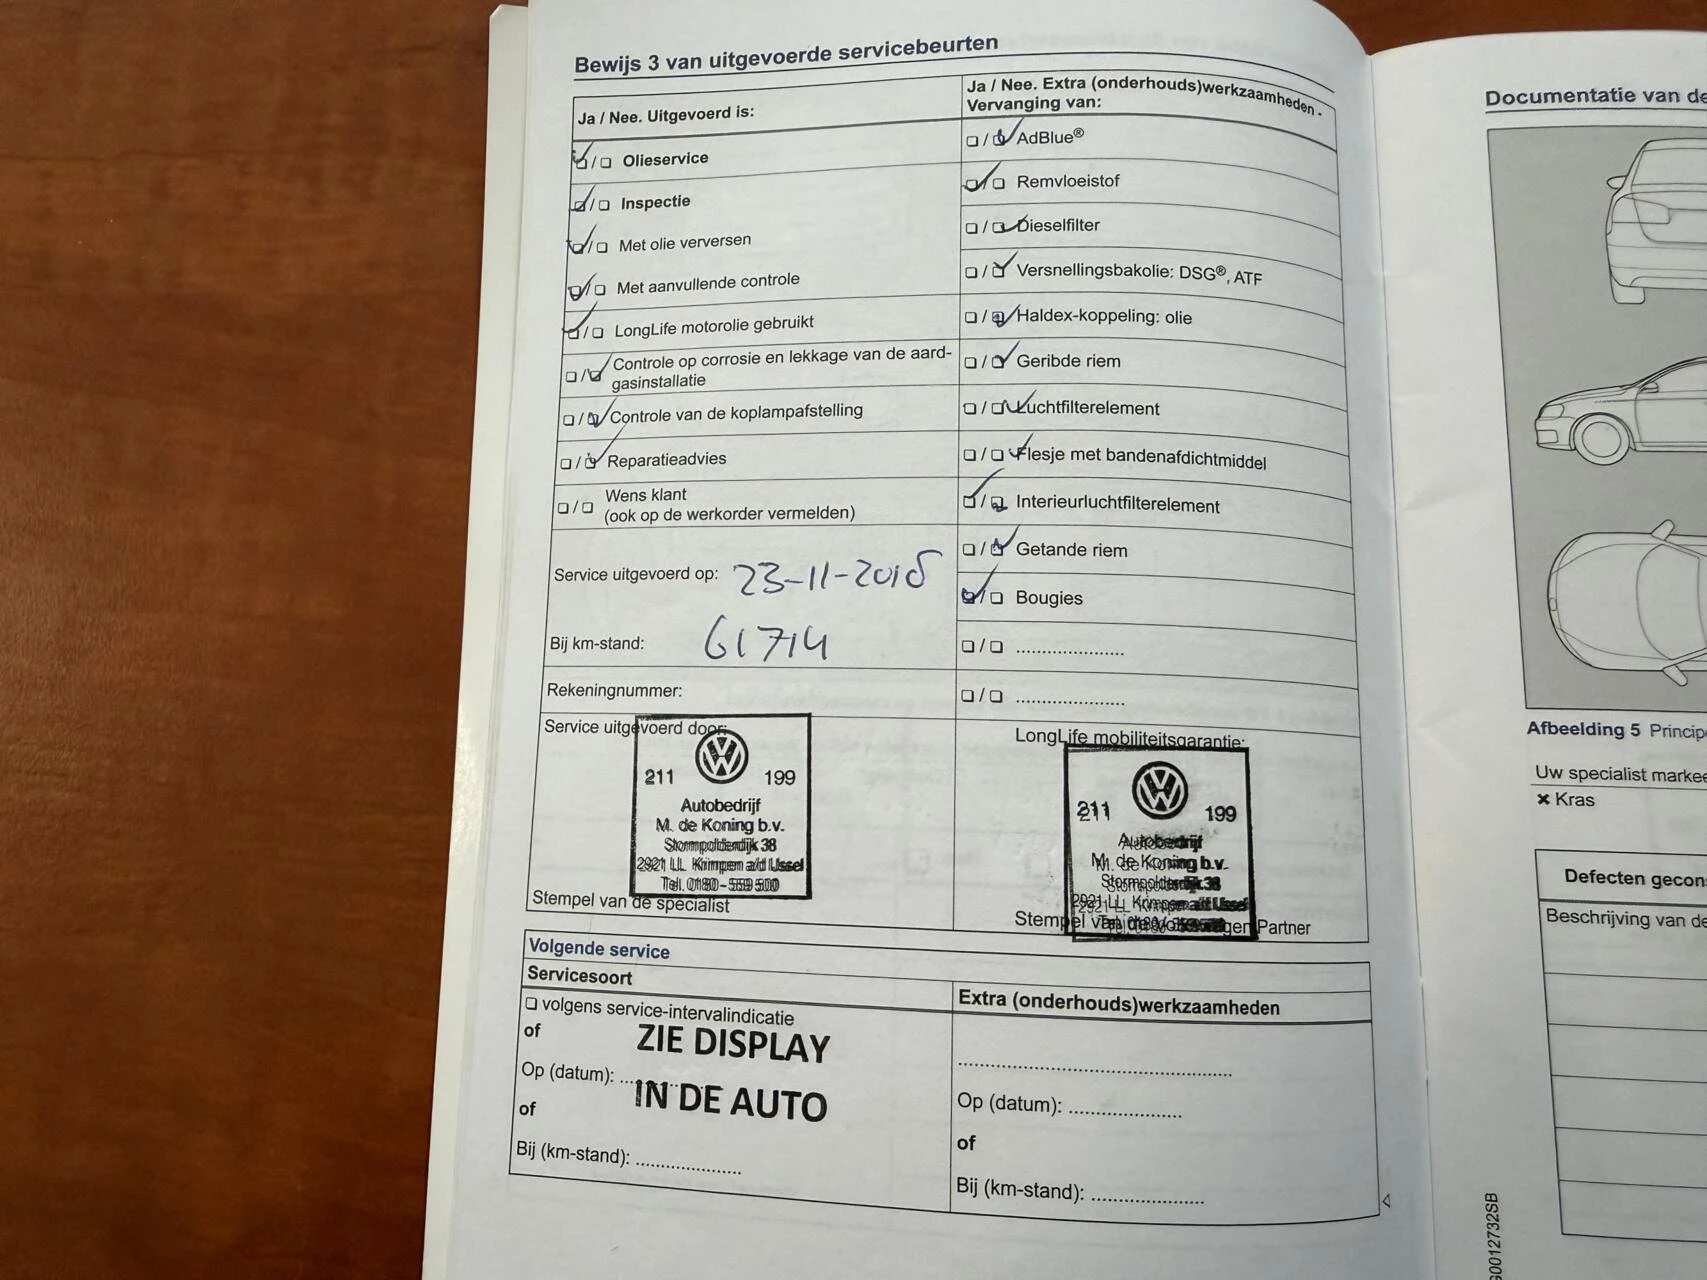 Bewijs 3 van uitgevoerde servicebeurten
Ja / Nee. Uitgevoerd is:
Olieservice
Inspectie
Met olie verversen
Met aanvullende controle
LongLife motorolie gebruikt
Controle op corrosie en lekkage van de aard-
gasinstallatie
Controle van de koplampafstelling
Reparatieadvies
Wens klant
(ook op de werkorder vermelden)
Service uitgevoerd op: 23-11-2018
Bij km-stand: 61714
Rekeningnummer:
Service uitgevoerd door:
211 199
Autobedrijf
M. de Koning b.v.
Stormpolderdijk 38
2921 LL Krimpen a/d IJssel
Tel. 0180 - 559 500
Stempel van de specialist
Ja / Nee. Extra (onderhouds)werkzaamheden -
Vervanging van:
AdBlue®
Remvloeistof
Dieselfilter
Versnellingsbakolie: DSG®, ATF
Haldex-koppeling: olie
Geribde riem
Luchtfilterelement
Flesje met bandenafdichtmiddel
Interieurluchtfilterelement
Getande riem
Bougies
......................
......................
LongLife mobiliteitsgarantie:
211 199
Autobedrijf
M. de Koning b.v.
Stormpolderdijk 38
2921 LL Krimpen a/d IJssel
Stempel van de Volkswagen Partner
Volgende service
Servicesoort
volgens service-intervalindicatie
of
ZIE DISPLAY
Op (datum): ............
IN DE AUTO
of
Bij (km-stand): .....................
Extra (onderhouds)werkzaamheden
.....................................................
Op (datum): ......................
of
Bij (km-stand): ......................
Documentatie van de
Afbeelding 5 Princip
Uw specialist marke
Kras
Defecten gecon
Beschrijving van de
0012732SB